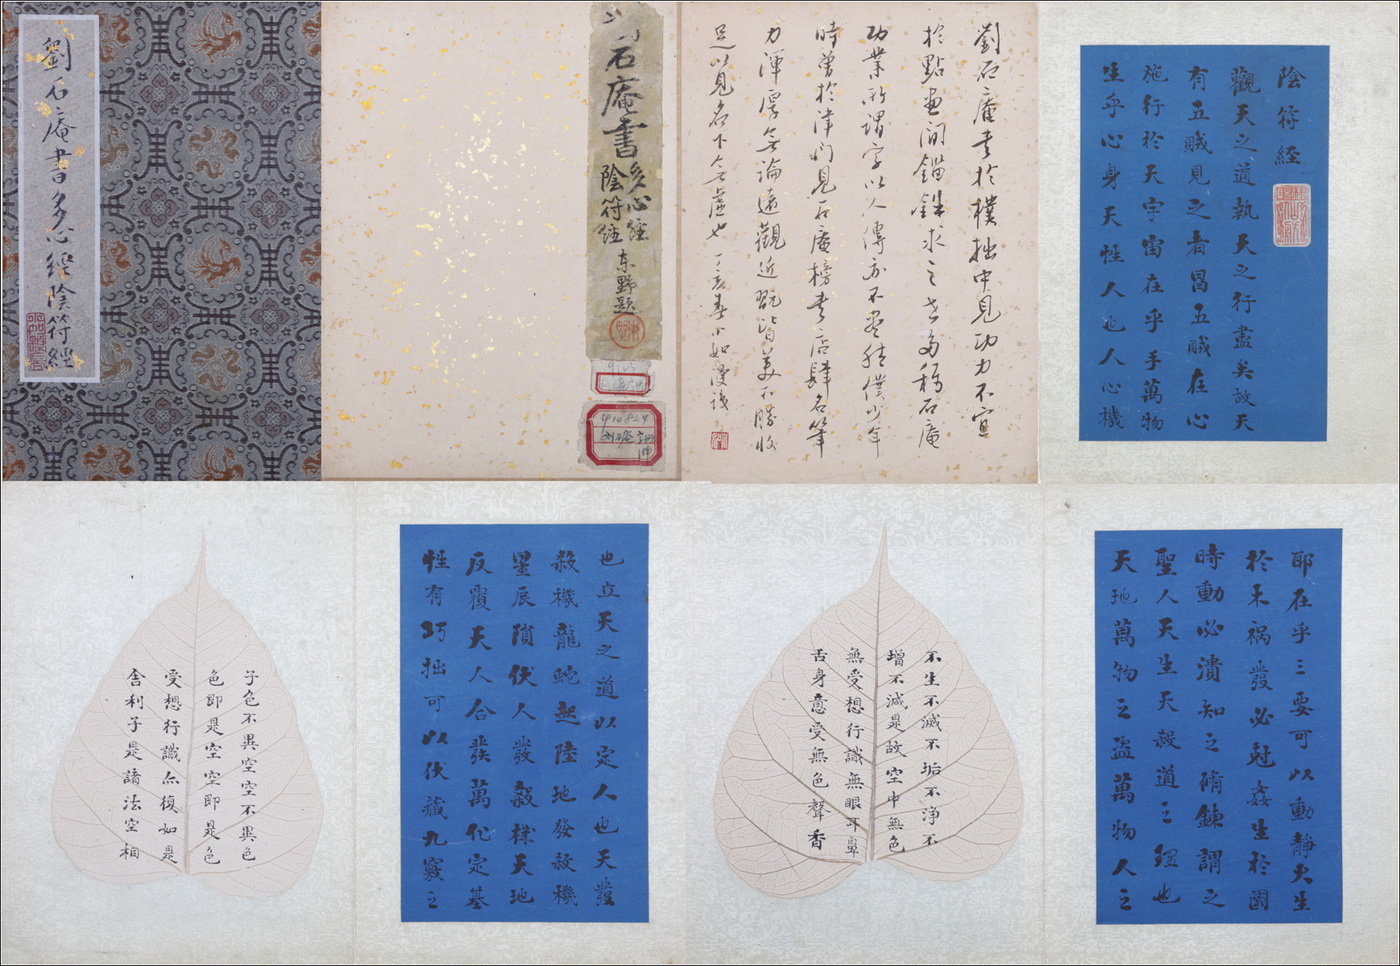 劉石庵書多心經陰符經
石庵書多心經
陰符經
东野題
劉石庵書於樸拙中見功力不宜
於點畫間錙銖求之世多稱石庵
功業所謂字以人傳亦不盡然僕少年
時曾於津門見石庵榜書店肆名筆
力渾厚無論遠觀近翫皆美不勝收
足以見名下無虛也
丁亥春小如漫識
陰符經
觀天之道執天之行盡矣故天
有五賊見之者昌五賊在心
施行於天宇宙在乎手萬物
生乎心身天性人也人心機
子色不異空空不異色
色即是空空即是色
受想行識亦復如是
舍利子是諸法空相
也立天之道以定人也天發
殺機龍蛇起陸地發殺機
星辰隕伏人發殺機天地
反覆天人合發萬化定基
性有巧拙可以伏藏九竅之
不生不滅不垢不淨不
增不減是故空中無色
無受想行識無眼耳鼻
舌身意受無色聲香
邪在乎三要可以動靜火生
於木禍發必尅姦生於國
時動必潰知之脩鍊謂之
聖人天生天殺道之理也
天地萬物之盜萬物人之